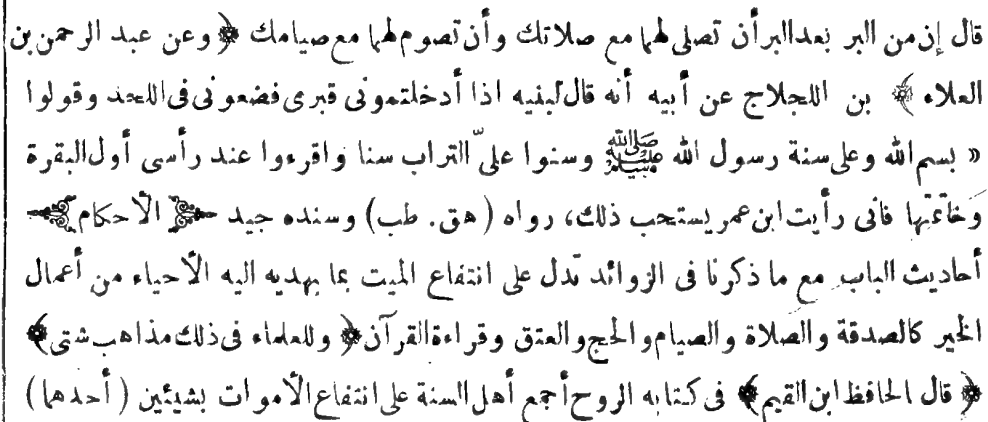 قال إن من البر بعد البر أن تصلى لهما مع صلاتك وأن تصوم لهما مع صيامك ﴿ وعن عبد الرحمن بن
العلاء ﴾ بن اللجلاج عن أبيه أنه قال لبنيه اذا أدخلتمونى قبرى فضعونى فى اللحد وقولوا
« بسم الله وعلى سنة رسول الله ﷺ وسنوا علىّ التراب سنا واقرءوا عند رأسى أول البقرة
وخاتمتها فانى رأيت ابن عمر يستحب ذلك، رواه ( هق . طب ) وسنده جيد ﴿ الأحكام ﴾
أحاديث الباب مع ما ذكرنا فى الزوائد تدل على انتفاع الميت بما يهديه اليه الأحياء من أعمال
الخير كالصدقة والصلاة والصيام والحج والعتق وقراءة القرآن ﴿ وللعلماء فى ذلك مذاهب شتى ﴾
﴿ قال الحافظ ابن القيم ﴾ فى كتابه الروح أجمع أهل السنة على انتفاع الأموات بشيئين ( أحدهما )